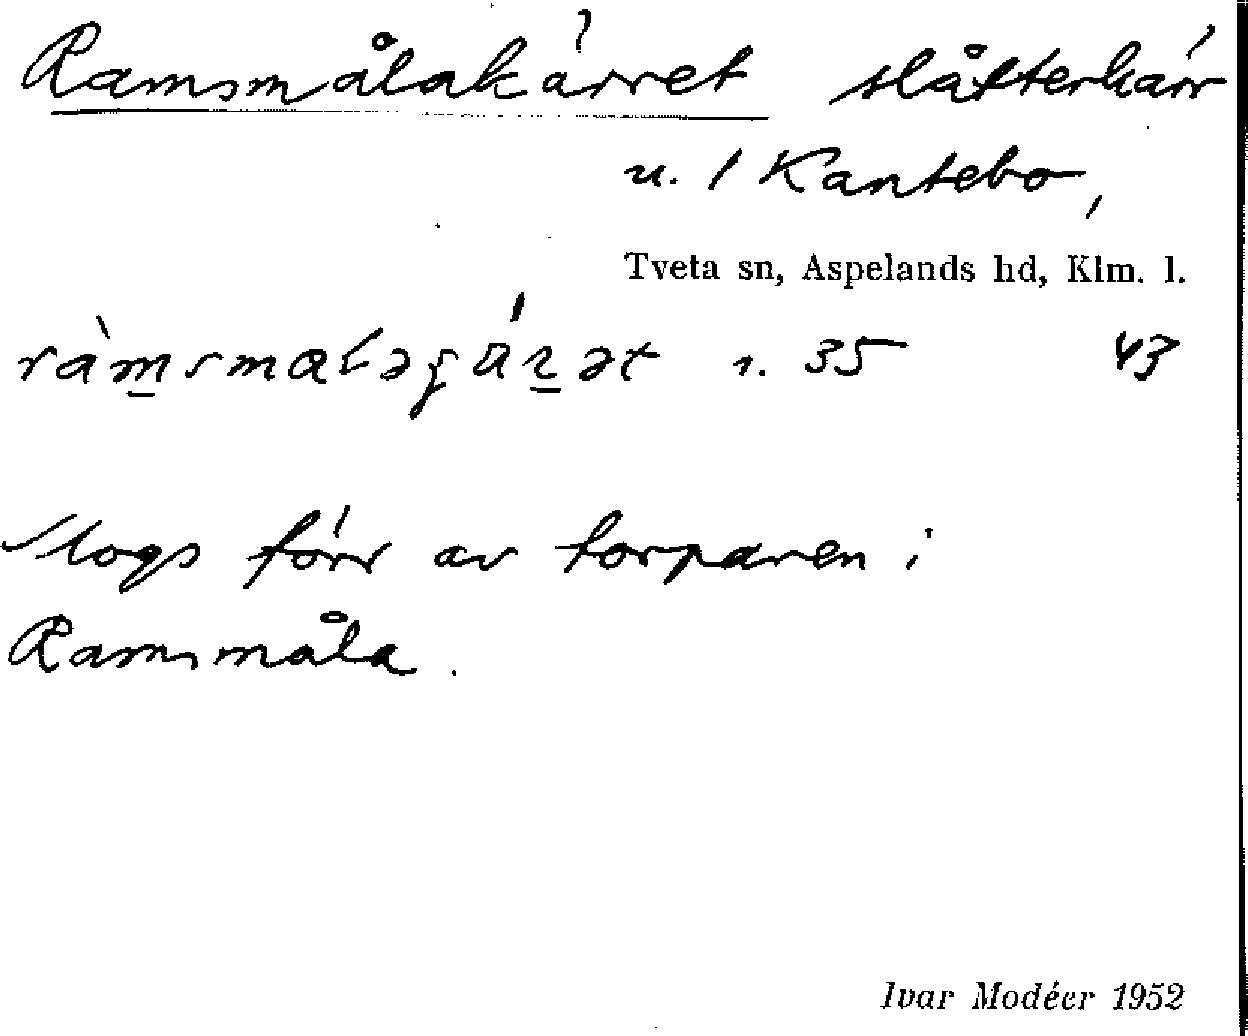 Ramsmålakärret slåtterkärr
u. 1 Kantebo,
Tveta sn, Aspelands hd, Klm. l.
s. 35 43
Slogs förr av torparen i
Ramsmåla.
Ivar Modéer 1952